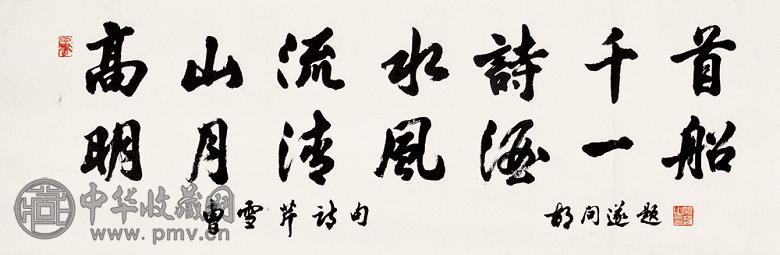 高山流水詩千首
明月清風酒一船
曹雪芹诗句 胡问遂题
中华收藏网
www.pmv.cn